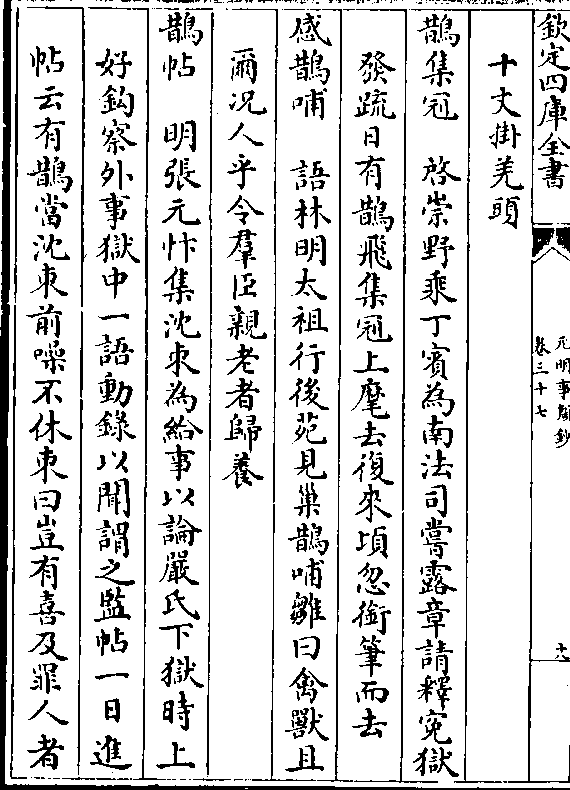 欽定四庫全書
元明事類鈔
卷三十七
十八
十丈掛羌頭
鵲集冠　啓崇野乘丁賓為南法司嘗露章請釋寃獄
發疏日有鵲飛集冠上麾去復來頃忽銜筆而去
感鵲哺　語林明太祖行後苑見巢鵲哺雛曰禽獸且
爾况人乎令羣臣親老者歸養
鵲帖　明張元忭集沈束為給事以論嚴氏下獄時上
好鈎察外事獄中一語動錄以聞謂之監帖一日進
帖云有鵲當沈束前噪不休束曰豈有喜及罪人者